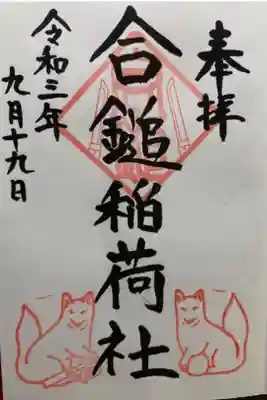 奉拝
合鎚稲荷社
令和三年
九月十九日